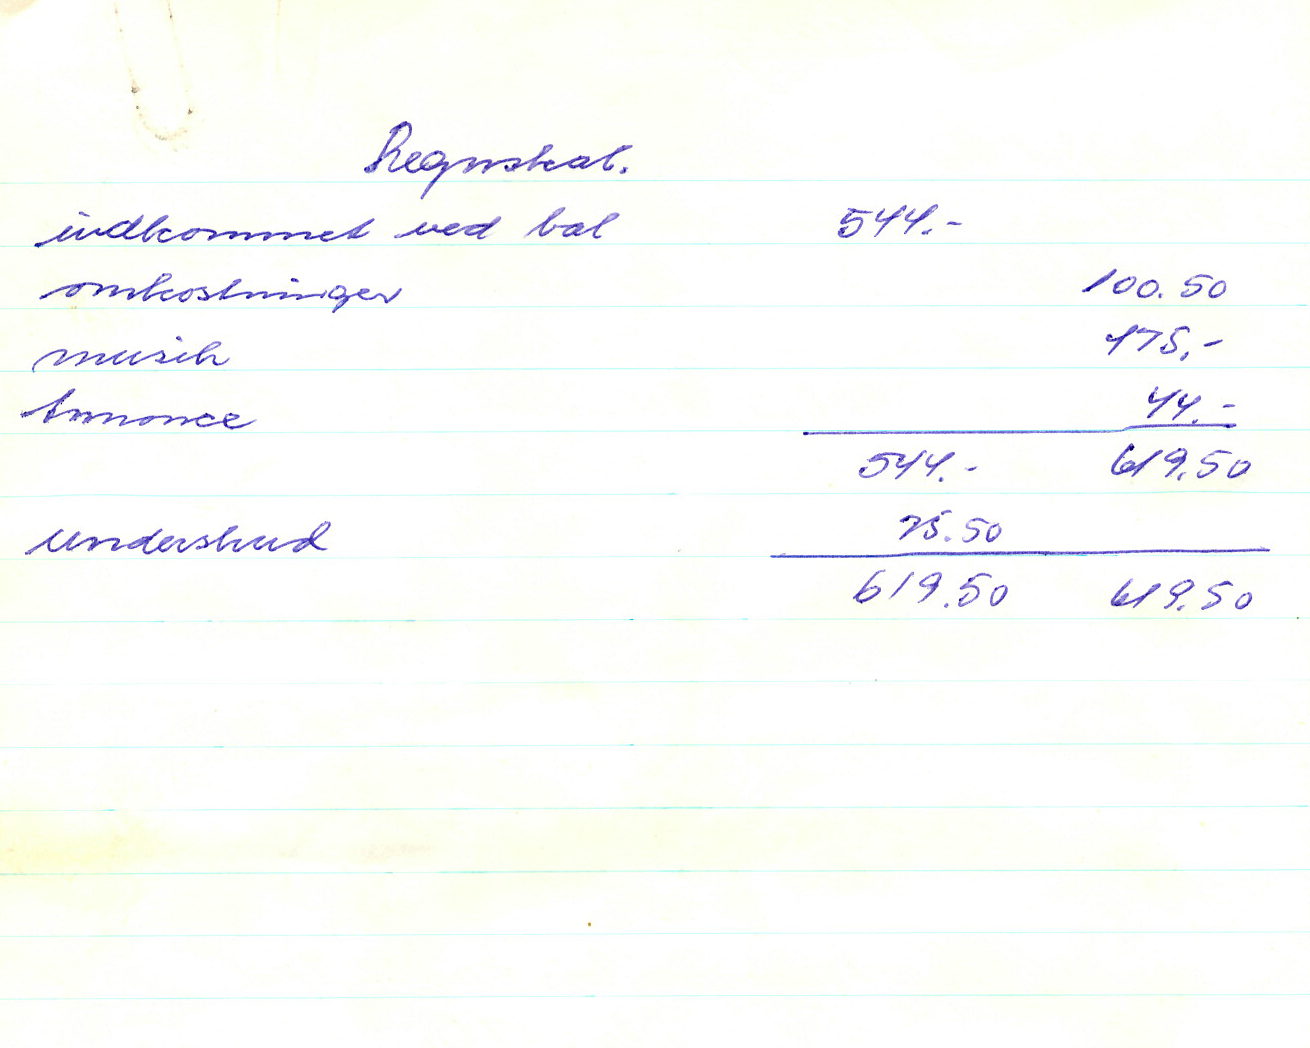 Regnskab.
indkommet ved bal 544.-
omkostninger 100.50
musik 475.-
Annonce 44.-
544.- 619.50
underskud 75.50
619.50 619.50